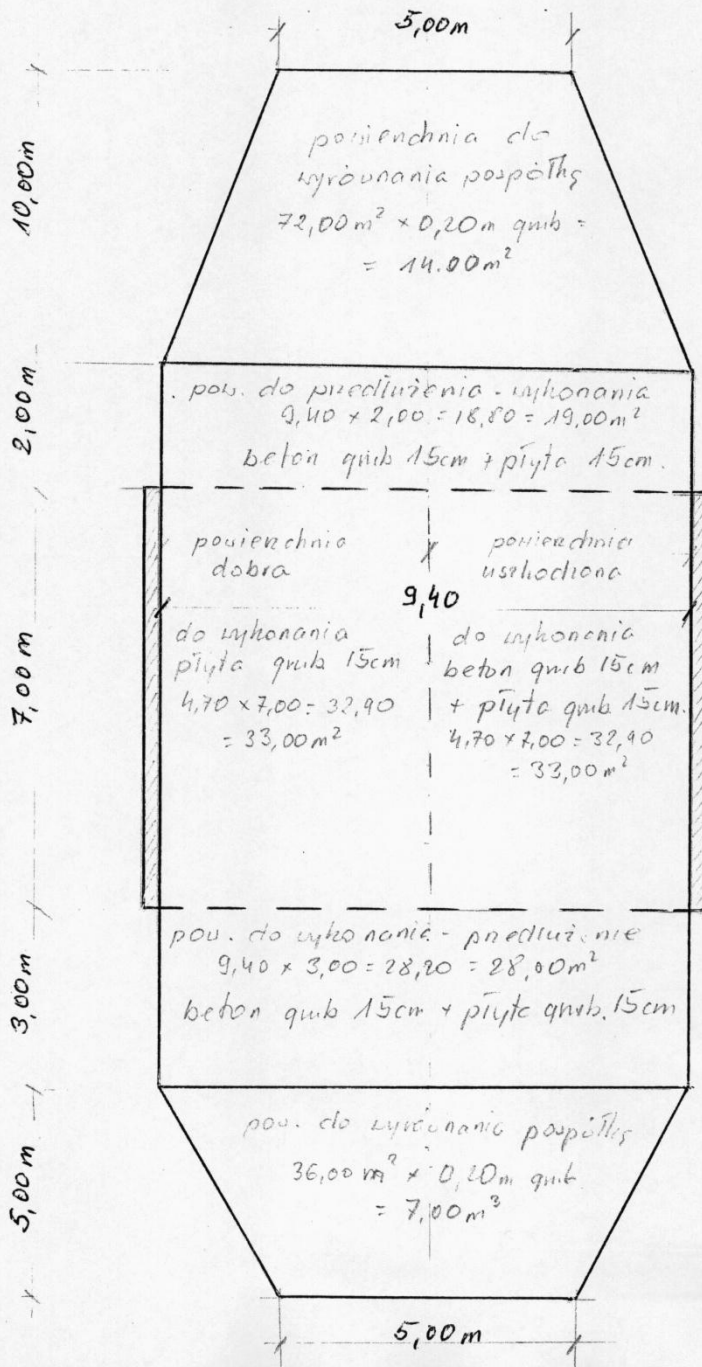 5,00m
10,00m
powierzchnia do
wyrównania pospółką
72,00m² × 0,20m grub =
= 14.00m²
2,00m
pow. do przedłużenia - wykonania
9,40 × 2,00 = 18,80 = 19,00m²
beton grub 15cm + płyta 15cm.
7,00m
powierzchnia
dobra
powierzchnia
uszkodzona
9,40
do wykonania
płyta grub 15cm
4,70 × 7,00 = 32,90
= 33,00m²
do wykonania
beton grub 15cm
+ płyta grub 15cm.
4,70 × 7,00 = 32,90
= 33,00m²
3,00m
pow. do wykonania - przedłużenie
9,40 × 3,00 = 28,20 = 28,00m²
beton grub 15cm + płyta grub. 15cm
5,00m
pow. do wyrównania pospółką
36,00m² × 0,20m grub.
= 7,00m³
5,00m